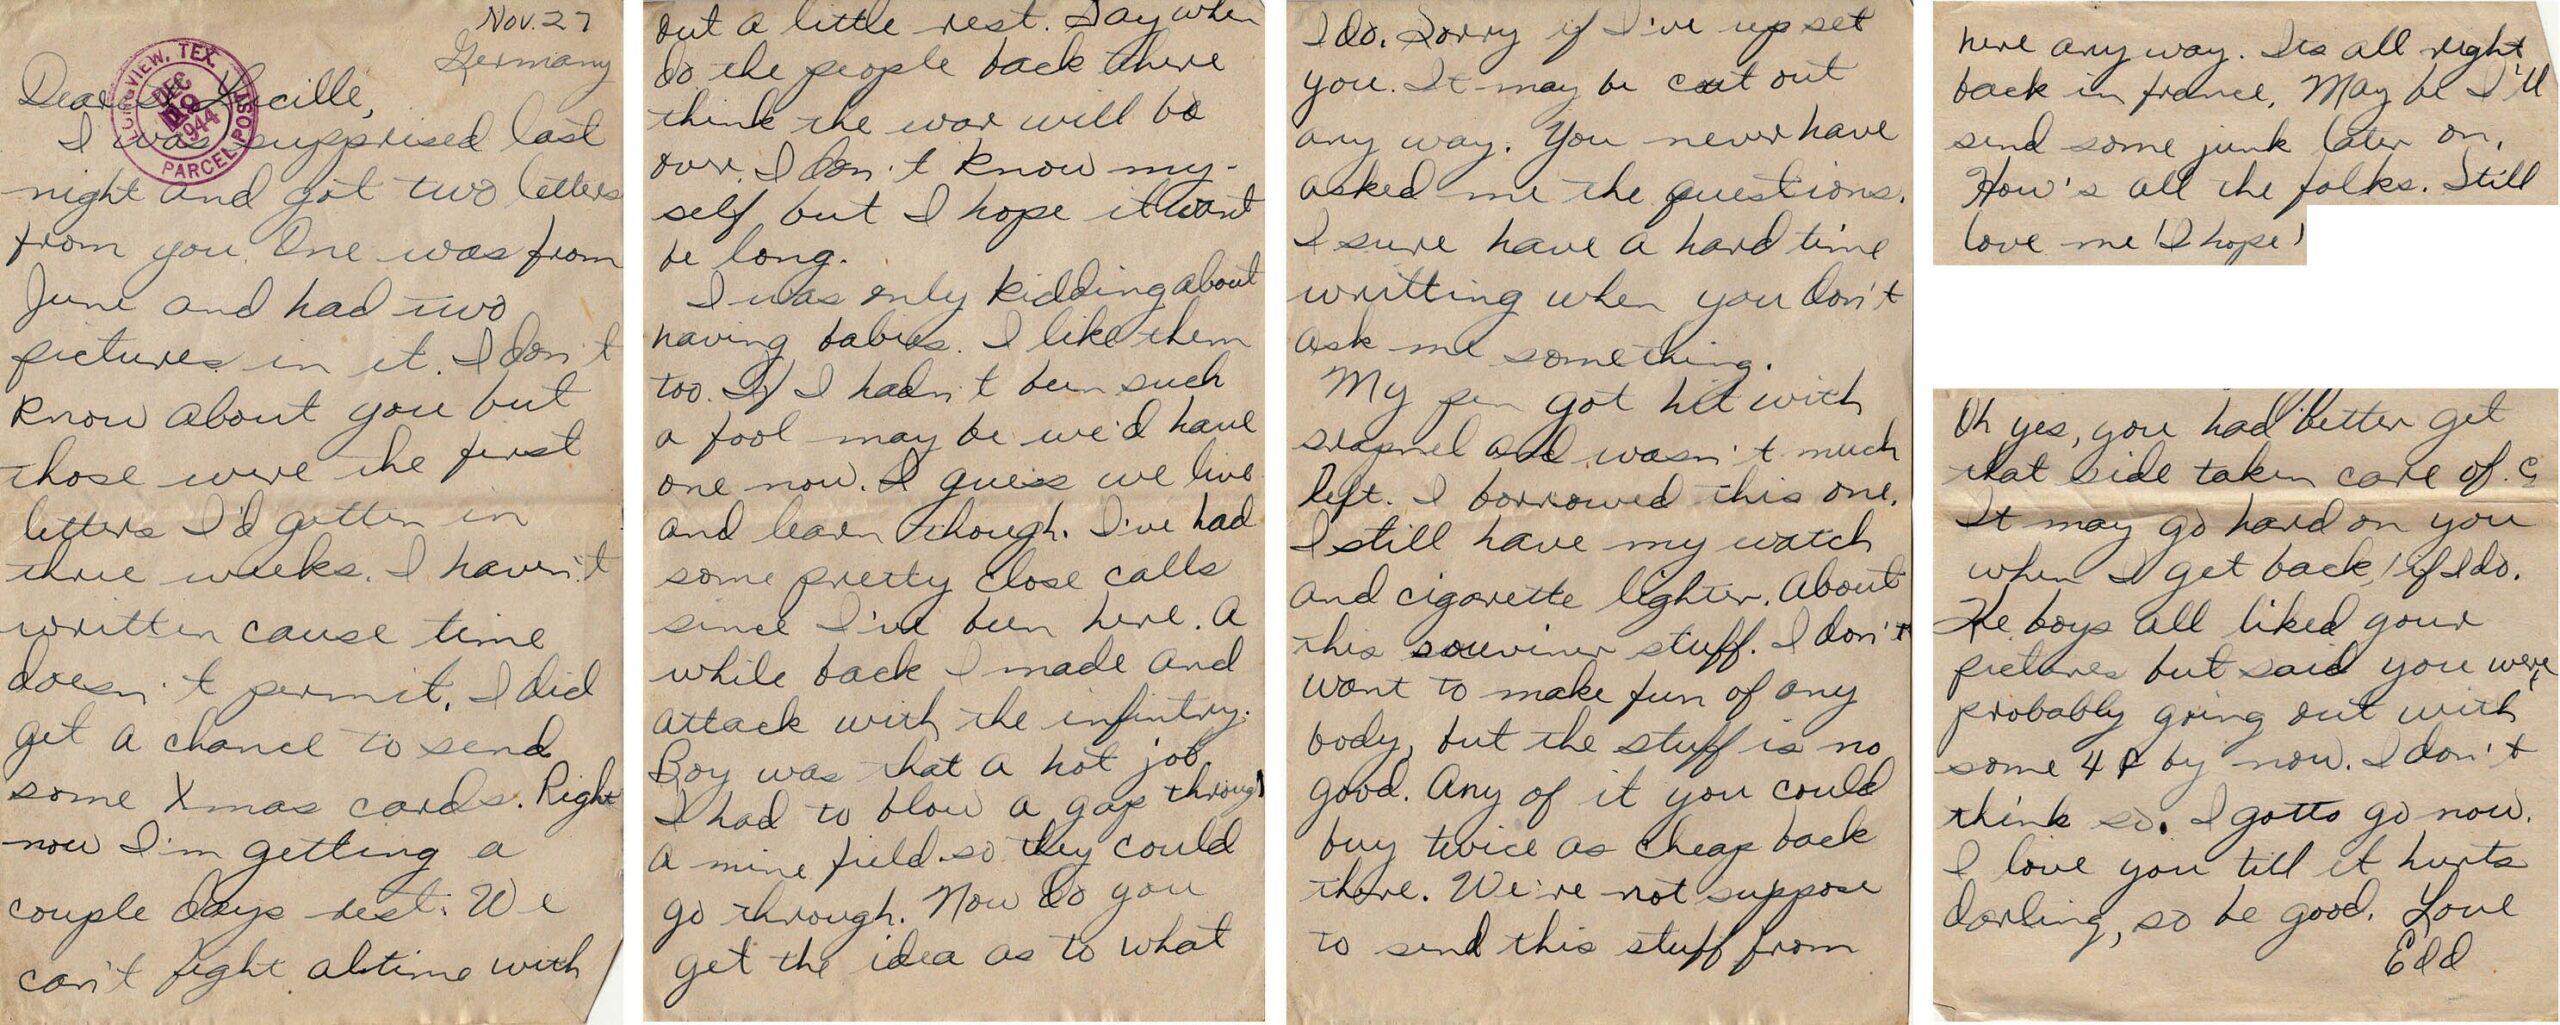 Nov. 27
Germany
LONGVIEW, TEX.
DEC
1944
PARCEL POST
Dearest Lucille,
I was supprised last
night and got two letters
from you. One was from
June and had two
pictures in it. I don't
know about you but
those were the first
letters I'd gotten in
three weeks. I haven't
written cause time
doesn't permit. I did
get a chance to send
some Xmas cards. Right
now I'm getting a
couple days rest. We
can't fight altime with
out a little rest. Say when
do the people back there
think the war will be
over. I don't know my-
self but I hope it wont
be long.
I was only kidding about
having babies. I like them
too. If I hadn't been such
a fool may be we'd have
one now. I guess we live
and learn though. I've had
some pretty close calls
since I've been here. A
while back I made and
attack with the infintry.
Boy was that a hot job
I had to blow a gap through
a mine field so they could
go through. Now do you
get the idea as to what
I do. Sorry if I've up set
you. It may be cut out
any way. You never have
asked me the questions.
I sure have a hard time
writting when you don't
ask me something.
My pen got hit with
srapnel and wasn't much
left. I borrowed this one.
I still have my watch
and cigarette lighter. About
this souviner stuff. I don't
want to make fun of any
body, but the stuff is no
good. Any of it you could
buy twice as cheap back
there. We're not suppose
to send this stuff from
here any way. Its all right
back in france. May be I'll
send some junk later on.
How's all the folks. Still
love me (I hope)
Oh yes, you had better get
that side taken care of.
It may go hard on you
when I get back, if I do.
The boys all liked your
pictures but said you were
probably going out with
some 4F by now. I don't
think so. I gotto go now.
I love you till it hurts
darling, so be good. Love
Edd